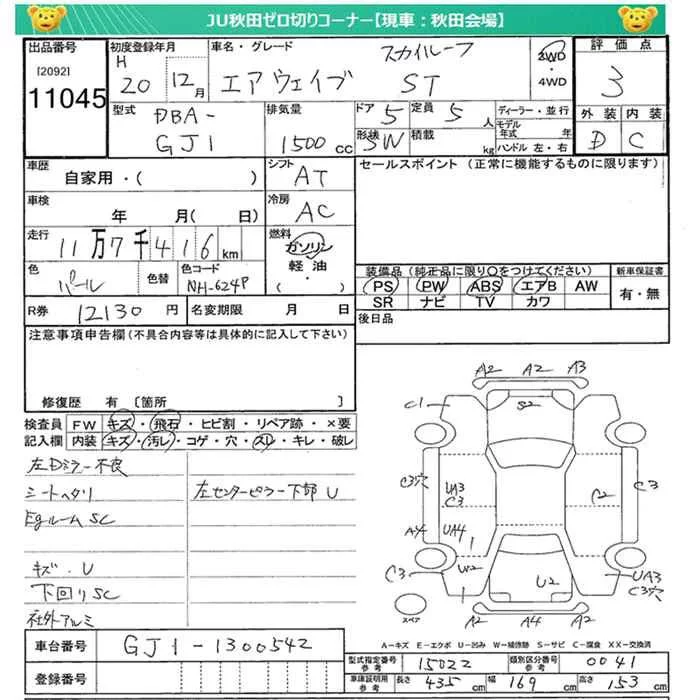 JU秋田ゼロ切りコーナー【現車：秋田会場】
出品番号
[2092]
11045
初度登録年月
H
20 12月
車名・グレード
スカイルーフ
エアウェイブ ST
2WD
・
4WD
評価点
3
外装 内装
D C
型式
DBA-
GJ1
排気量
1500 cc
ドア 5
定員 5 人
形状 5W
積載 kg
ディーラー・並行
モデル年式 年
ハンドル 左・右
車歴
自家用・( )
シフト
AT
セールスポイント （正常に機能するものに限ります）
車検
年 月( 日)
冷房
AC
走行
11万7千416km
燃料
ガソリン
軽油
・
色
パール
色替
色コード
NH-624P
装備品（純正品に限り○をつけてください）
PS PW ABS エアB AW
SR ナビ TV カワ
新車保証書
有・無
R券 12130 円
名変期限 月 日
後日品
注意事項申告欄（不具合内容等は具体的に記入して下さい）
修復歴 有 〔箇所 〕
検査員記入欄
FW キズ・飛石・ヒビ割・リペア跡・×要
内装 キズ・汚レ・コゲ・穴・スレ・キレ・破レ
左Dミラー不良
シートヘタリ
左センターピラー下部 U
Egルーム SC
キズ・U
下回りSC
社外アルミ
A2 A2 A3
C1
S2
C3穴
UA3
C3
C2
C3
A4
UA4
W2
C3
U2
UA3
C3
スペア
A2 A4 A2
A－キズ E－エクボ U－凹み W－補修跡 S－サビ C－腐食 XX－交換済
車台番号 GJ1-1300542
登録番号
型式指定番号 参考 15022
類別区分番号 参考 0041
車庫証明用 参考 長さ 435 cm 幅 169 cm 高さ 153 cm